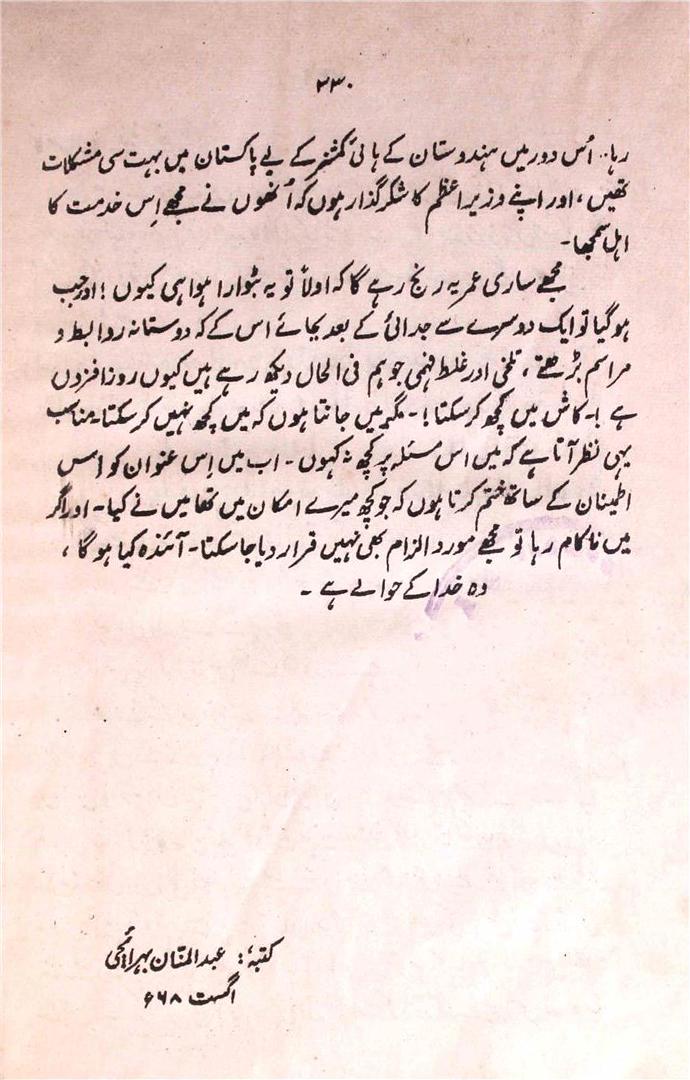 ۳۳۰
رہا۔ اُس دور میں ہندوستان کے ہائی کمشنر کے لیے پاکستان میں بہت سی مشکلات
تھیں، اور اپنے وزیر اعظم کا شکر گذار ہوں کہ اُنھوں نے مجھے اِس خدمت کا
اہل سمجھا۔
مجھے ساری عمر یہ رنج رہے گا کہ اولاً تو یہ بٹوارا ہوا ہی کیوں! اور جب
ہو گیا تو ایک دوسرے سے جدائی کے بعد بجائے اس کے کہ دوستانہ روابط و
مراسم بڑھتے، تلخی اور غلط فہمی جو ہم فی الحال دیکھ رہے ہیں کیوں روز افزوں
ہے!۔ کاش میں کچھ کر سکتا!۔ مگر میں جانتا ہوں کہ میں کچھ نہیں کر سکتا۔ مناسب
یہی نظر آتا ہے کہ میں اس مسئلہ پر کچھ نہ کہوں۔ اب میں اِس عنوان کو اس
اطمینان کے ساتھ ختم کرتا ہوں کہ جو کچھ میرے امکان میں تھا میں نے کیا۔ اور اگر
میں ناکام رہا تو مجھے مورد الزام بھی نہیں قرار دیا جا سکتا۔ آئندہ کیا ہو گا،
وہ خدا کے حوالے ہے۔
کتبۂ: عبدالمنّان بہرائچی
اگست ۶۶۸